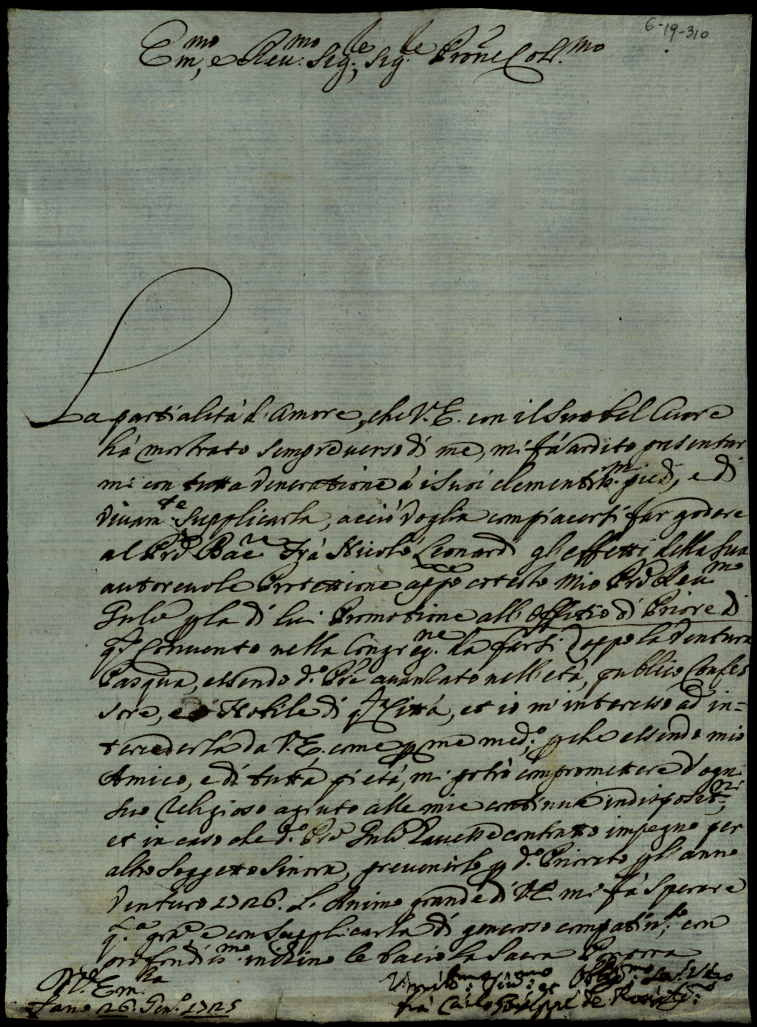 6-19-310
Em.mo, e Reu.mo Sig.re, Sig.re Prōne Col.mo
La partialità d'Amore, che V.E. con il suo bel Cuore
hà mostrato sempre verso di me, mi fà ardito presentar
mi con tutta veneratione à i suoi clementis.mi piedi, e di
viuam.te supplicarla, acciò voglia compiacersi far godere
al Prē Bac.re Frà Nicolò Leonardi gli effetti della sua
autoreuole Protettione appo cotesto mio Prē Reu.mo
Gnl'e p la di lui Promotione all'Offitio di Priore di
q.to Conuento nella Congreg.ne da farsi doppo la ventura
Pasqua, essendo d.o Prē auanzato nell'età, publico Confes
sore, e Nobile di q.ta Città, et io m'interesso ad in=
tercederla da V.E. come p me med.o, p che essendo mio
Amico, e di tutta pietà, mi potrò compromettere d'ogni
suo religioso agiuto alle mie continue indispositni,
et in caso che d.o Prē Gnl'e hauesse contratto impegno per
altro soggetto sinora, preuenirlo p d.o Priorato p l'anno
venturo 1726. L'Animo grande di V.E. mi fà sperare
q.ta gra.a e con supplicarla di generoso compatim.to con
profondis.mo inchino le bacio la Sacra Porpora
D. V.ra Em.za
Fano 26. Gen.o 1725
Umilis.mo Diu.mo et Oblig.mo Ser.re
frà Carlo Giuseppe de